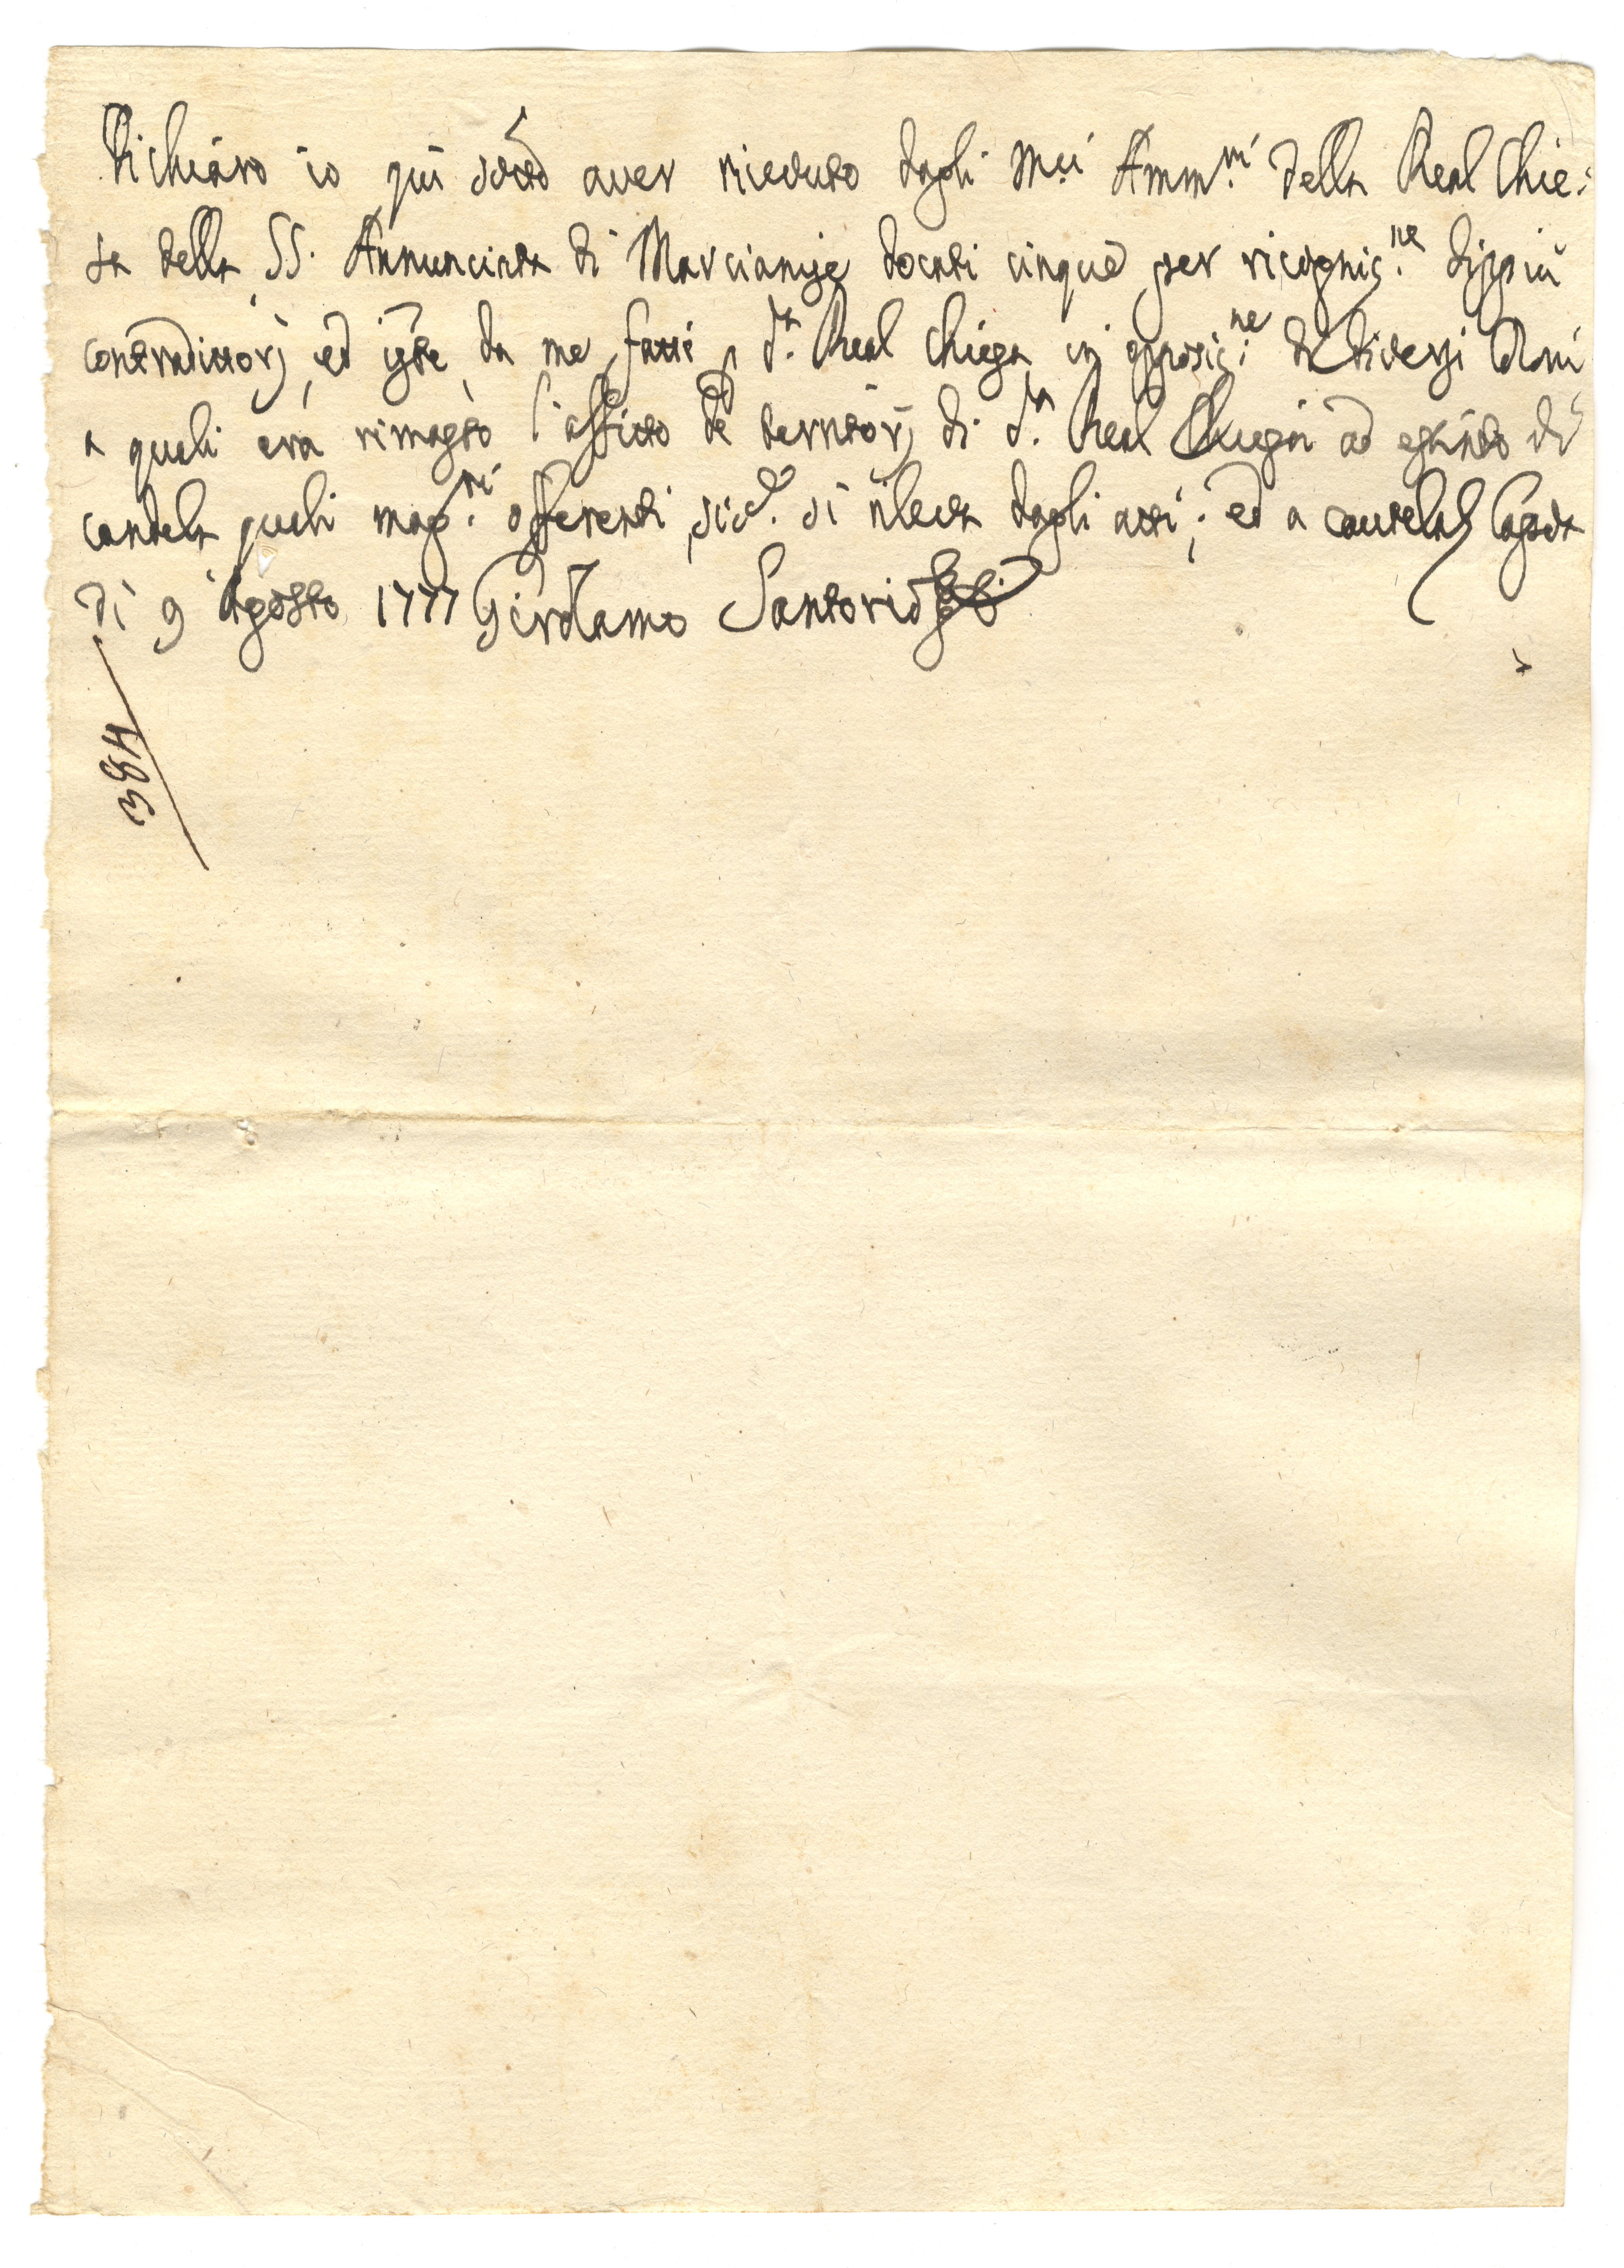 Dichiaro io quì sotto aver riceuuto dagli Mci Amm.ri della Real Chie:
sa della SS. Annunciata di Marcianise docati cinque per ricogniz.ne di più
contradittorj, ed iste, da me fatti p d.a Real Chiesa in opposiz.ne di diversi
a quali era rimasto l'affitto de territorj di d.a Real Chiesa ad estinto di
candela quali mag.ri offerenti, si rileva dagli atti; ed a cautela Capoa
di 9 Agosto 1777 Girolamo Santorio
384